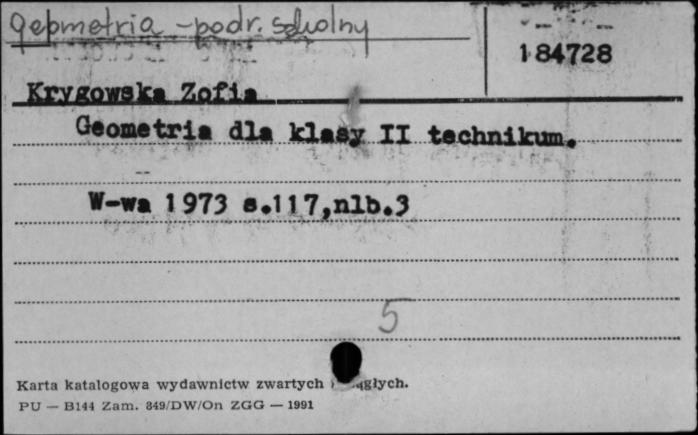 geometria - podr. szkolny
184728
Krygowska Zofia
Geometria dla klasy II technikum.
W-wa 1973 s.117,nlb.3
5
Karta katalogowa wydawnictw zwartych
PU — B144 Zam. 849/DW/On ZGG — 1991